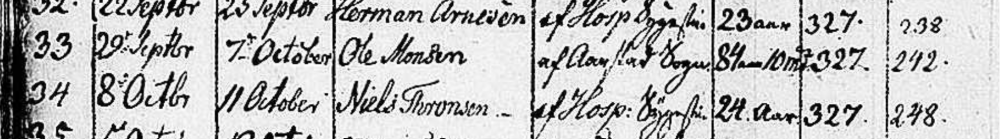 32. 22 Septbr 25 Septbr Herman Arnesen af Hosp Sygestue 23 aar 327. 238
33 29 Septbr 7 October Ole Monsen af Aarstad Sogn. 84 aar 10 md 327 242.
34 8 Octbr 11 October Niels Thronsen af Hosp: Sygestue 24 Aar 327. 248.
35